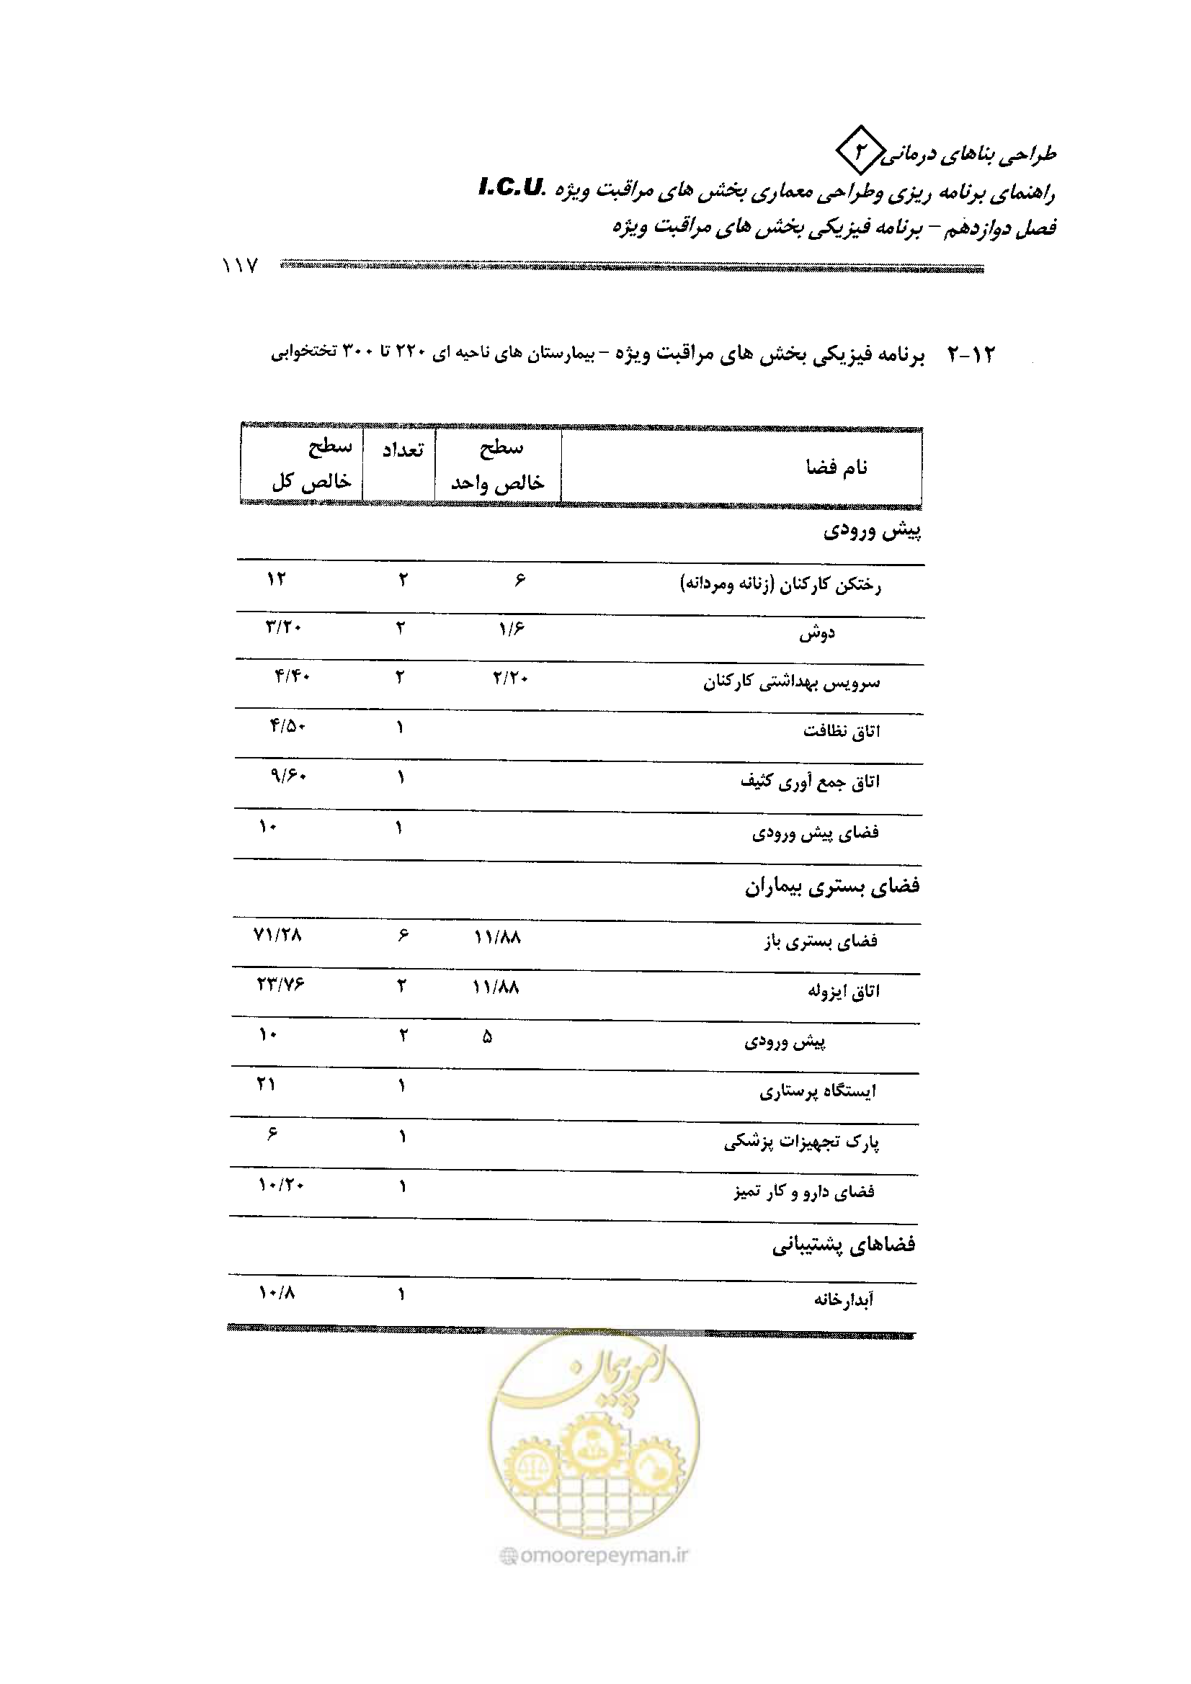 طراحی بناهای درمانی ۲
راهنمای برنامه ریزی وطراحی معماری بخش های مراقبت ویژه I.C.U.
فصل دوازدهم – برنامه فیزیکی بخش های مراقبت ویژه
۱۱۷
۲-۱۲ برنامه فیزیکی بخش های مراقبت ویژه – بیمارستان های ناحیه ای ۲۲۰ تا ۳۰۰ تختخوابی
نام فضا سطح خالص واحد تعداد سطح خالص کل
پیش ورودی
رختکن کارکنان (زنانه ومردانه) ۶ ۲ ۱۲
دوش ۱/۶ ۲ ۳/۲۰
سرویس بهداشتی کارکنان ۲/۲۰ ۲ ۴/۴۰
اتاق نظافت ۱ ۴/۵۰
اتاق جمع آوری کثیف ۱ ۹/۶۰
فضای پیش ورودی ۱ ۱۰
فضای بستری بیماران
فضای بستری باز ۱۱/۸۸ ۶ ۷۱/۲۸
اتاق ایزوله ۱۱/۸۸ ۲ ۲۳/۷۶
پیش ورودی ۵ ۲ ۱۰
ایستگاه پرستاری ۱ ۲۱
پارک تجهیزات پزشکی ۱ ۶
فضای دارو و کار تمیز ۱ ۱۰/۲۰
فضاهای پشتیبانی
آبدارخانه ۱ ۱۰/۸
امور پیمان
@omoorepeyman.ir